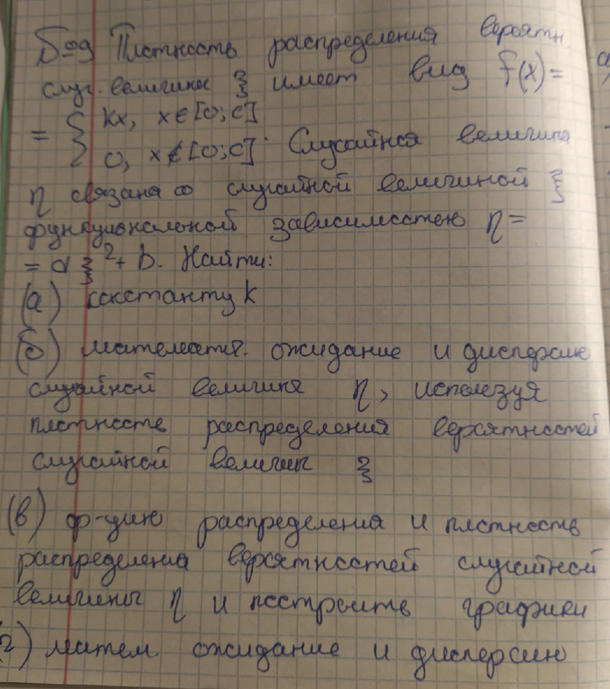 Плотность распределения вероятн.
случ. величины ξ имеет вид f(x)=
= { kx, x∈[0;c]
0, x∉[0;c]. Случайная величина
η связана со случайной величиной ξ
функциональной зависимостью η=
= aξ²+b. Найти:
(а) константу k
(б) математ. ожидание и дисперсию
случайной величины η, используя
плотность распределения вероятностей
случайной величины ξ
(в) ф-цию распределения и плотность
распределения вероятностей случайной
величины η и построить графики
(г) матем. ожидание и дисперсию